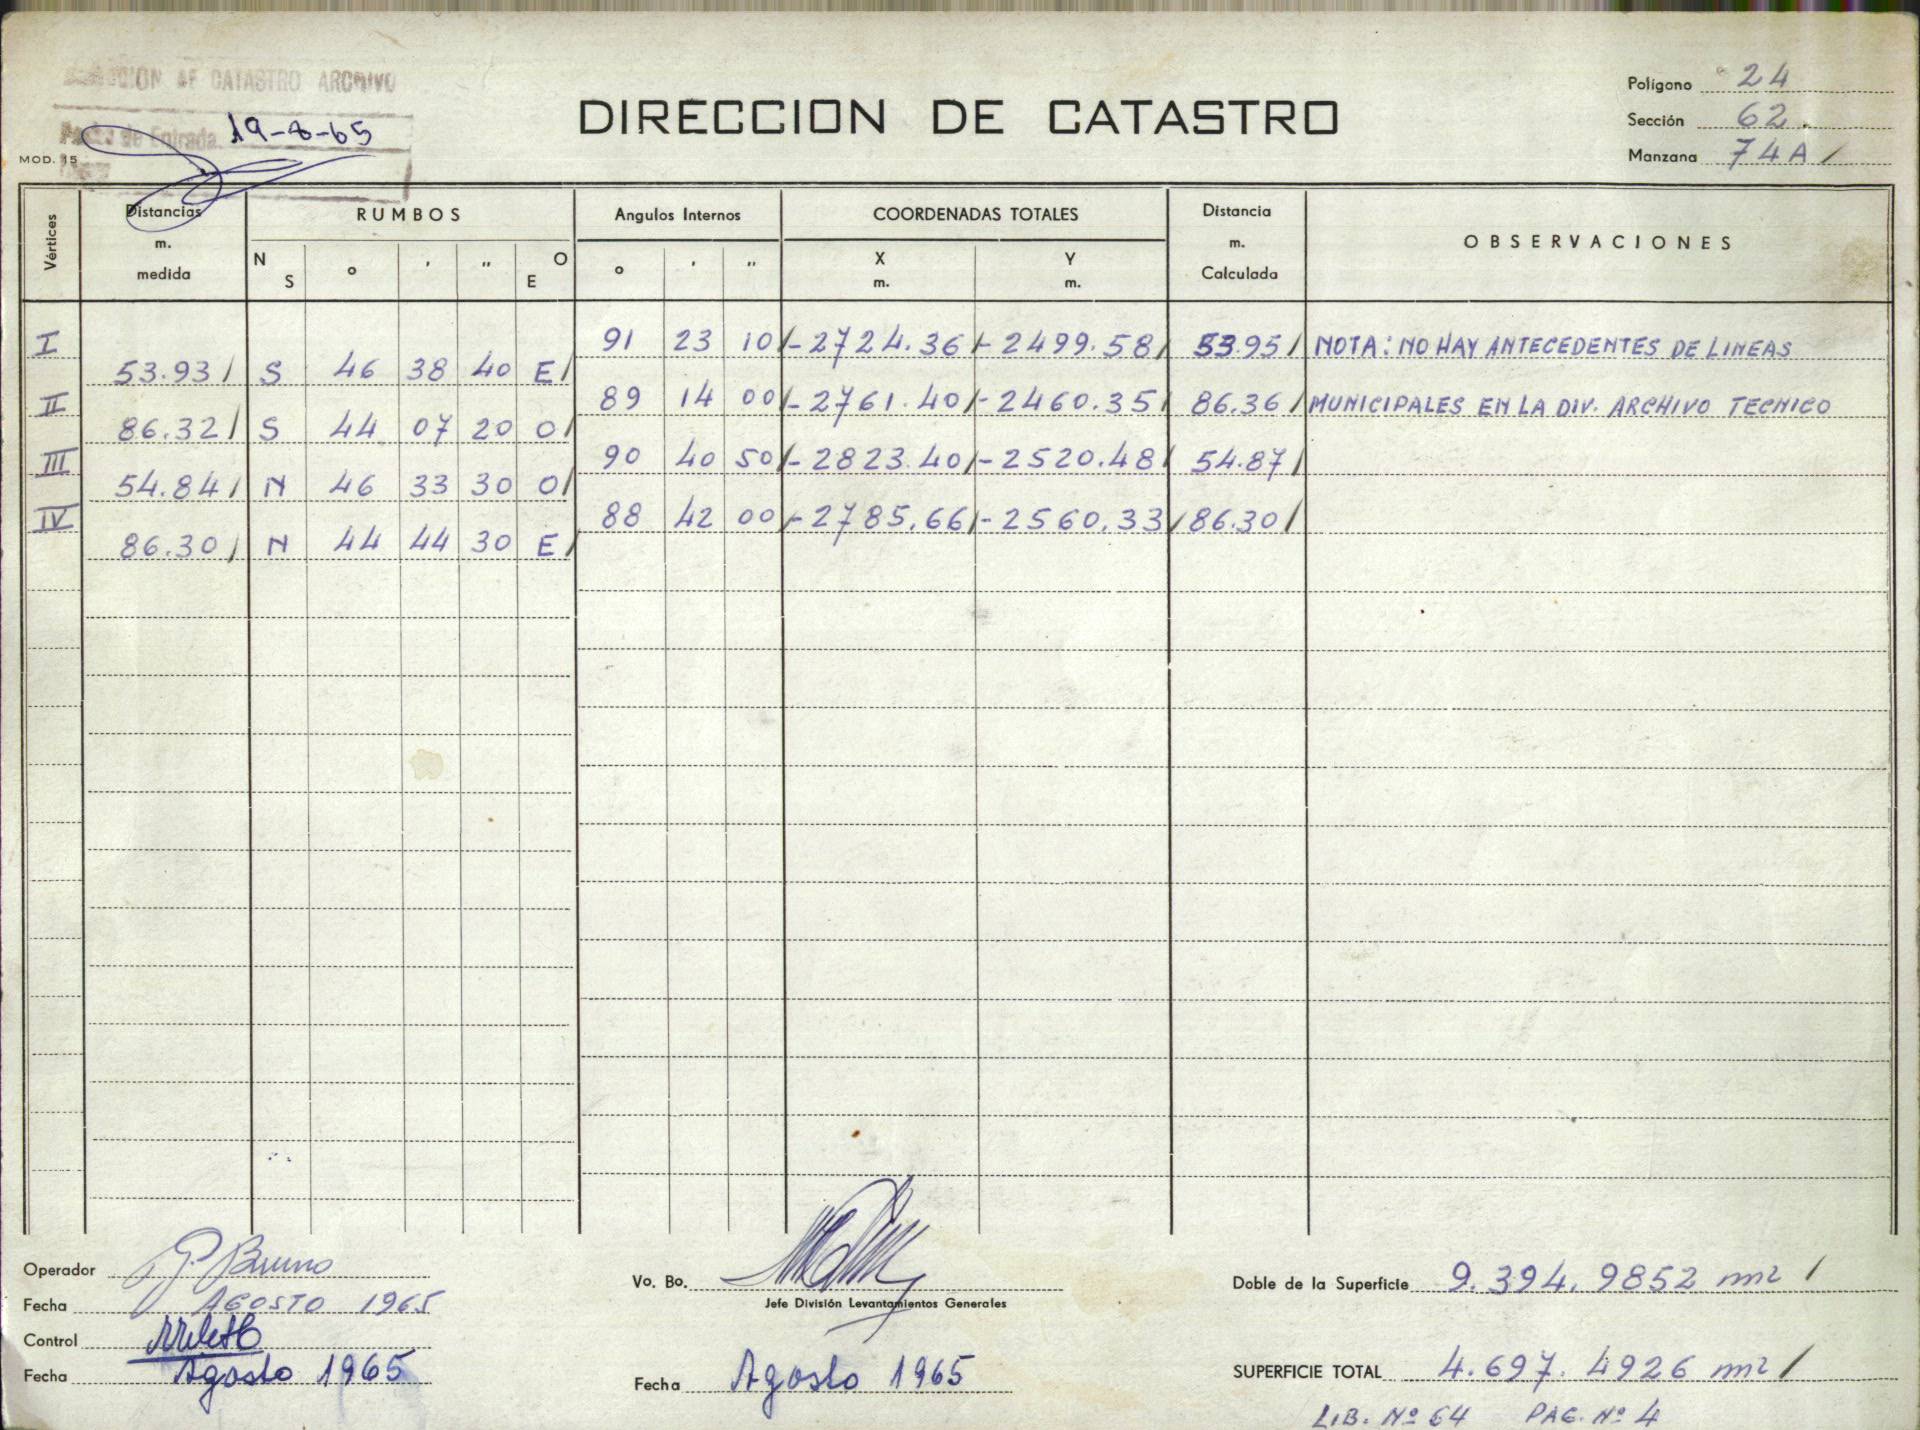 DIRECCION DE CATASTRO ARCHIVO
Fecha de Entrada 19-8-65
MOD. 15
DIRECCION DE CATASTRO
Polígono 24
Sección 62.
Manzana 74A /
Vértices
Distancias m. medida
RUMBOS
N S ° ' " O E
Angulos Internos
° ' "
COORDENADAS TOTALES
X m. Y m.
Distancia m. Calculada
OBSERVACIONES
I 91 23 10 /-2724.36 /-2499.58 / 53.95 / NOTA: NO HAY ANTECEDENTES DE LINEAS
53.93 / S 46 38 40 E /
II 89 14 00 /-2761.40 /-2460.35 / 86.36 / MUNICIPALES EN LA DIV. ARCHIVO TECNICO
86.32 / S 44 07 20 O /
III 90 40 50 /-2823.40 /-2520.48 / 54.87 /
54.84 / N 46 33 30 O /
IV 88 42 00 /-2785.66 /-2560.33 / 86.30 /
86.30 / N 44 44 30 E /
Operador G. Bruno
Fecha AGOSTO 1965
Control
Fecha Agosto 1965
Vo. Bo.
Jefe División Levantamientos Generales
Fecha Agosto 1965
Doble de la Superficie 9.394.9852 m2 /
SUPERFICIE TOTAL 4.697.4926 m2 /
LIB. Nº 64 PAG. Nº 4